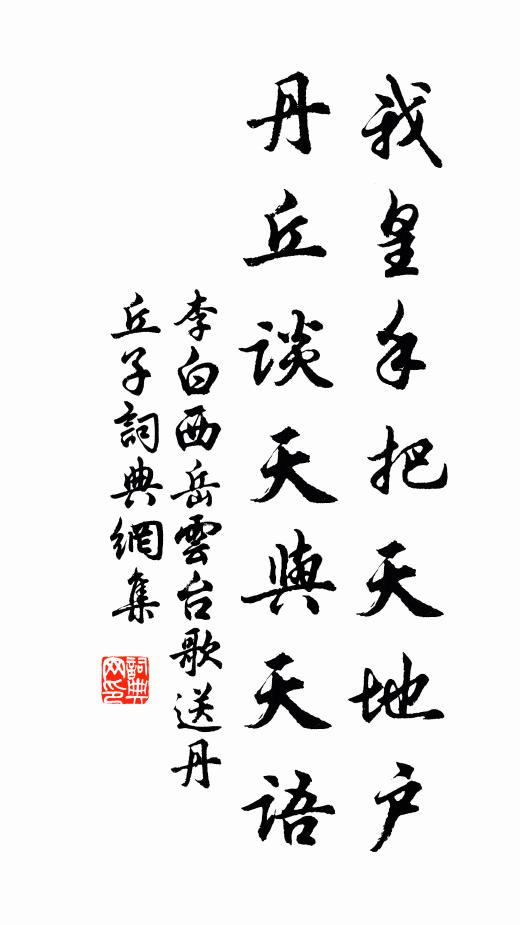 我皇手把天地户
丹丘談天與天語
李白西岳雲台歌送丹
丘子詞典網集
詞典
网印